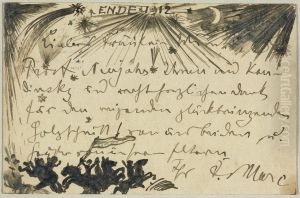 ENDE 1912
Liebes Fräulein
Prosit Neujahr Ihnen und Kan-
dinsky und recht herzlichen Dank
für den reizenden glückbringenden
Holzschnitt von uns beiden
Eltern
Ihr F. Marc